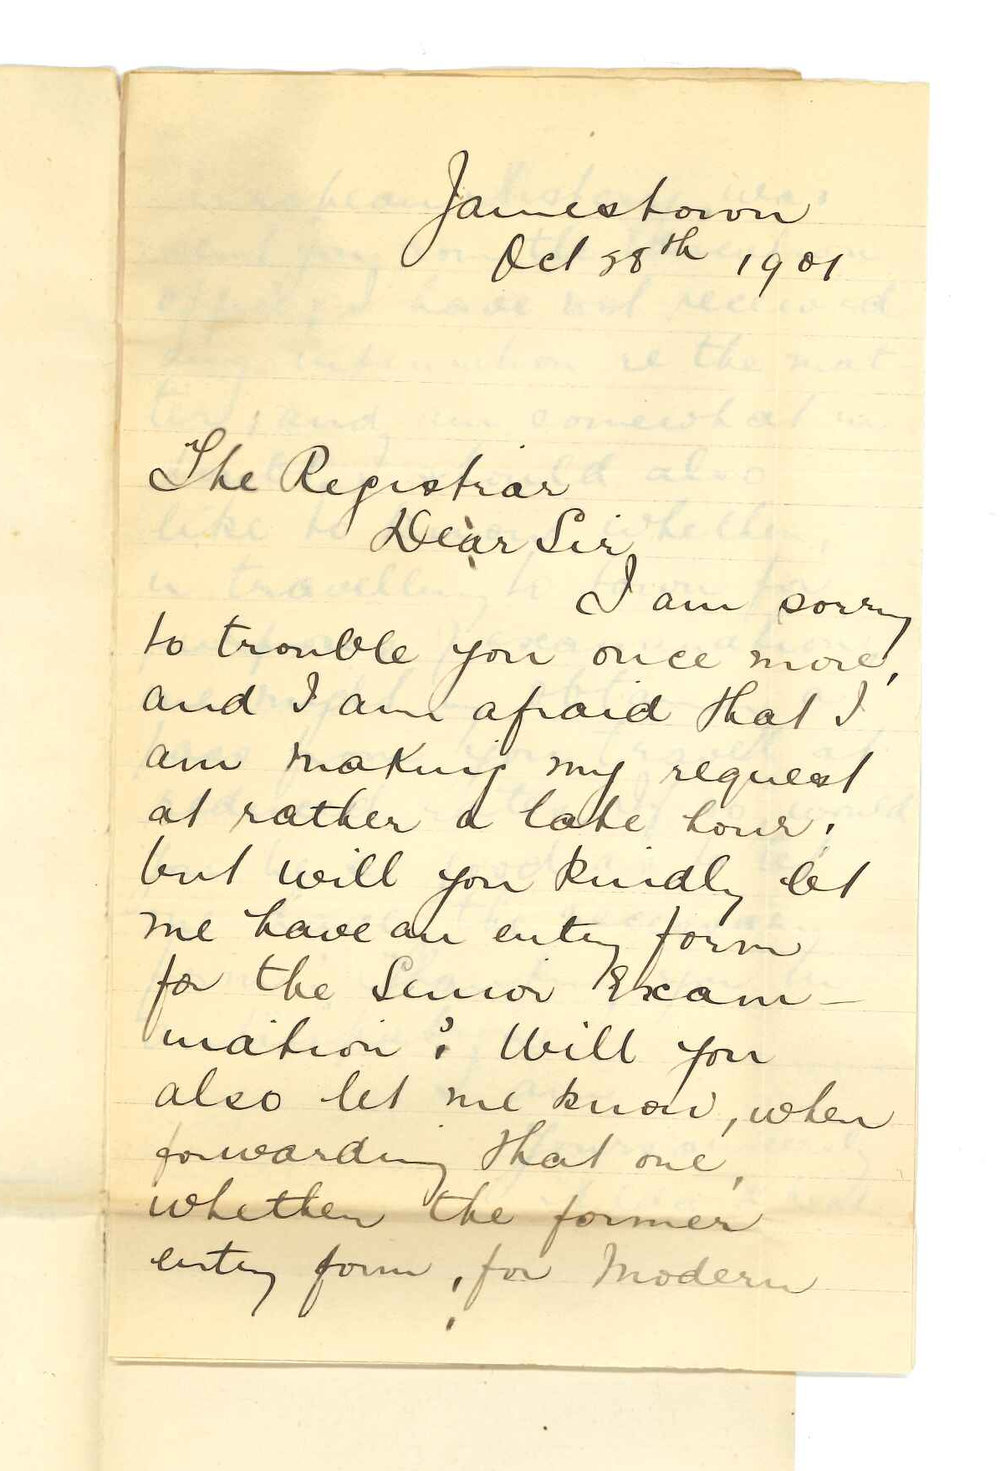 Jamestown
Oct 28th 1901
The Registrar
Dear Sir,
I am sorry
to trouble you once more,
and I am afraid that I
am making my request
at rather a late hour;
but will you kindly let
me have an entry form
for the Senior Exam-
ination? Will you
also let me know, when
forwarding that one,
whether the former
entry form, for Modern